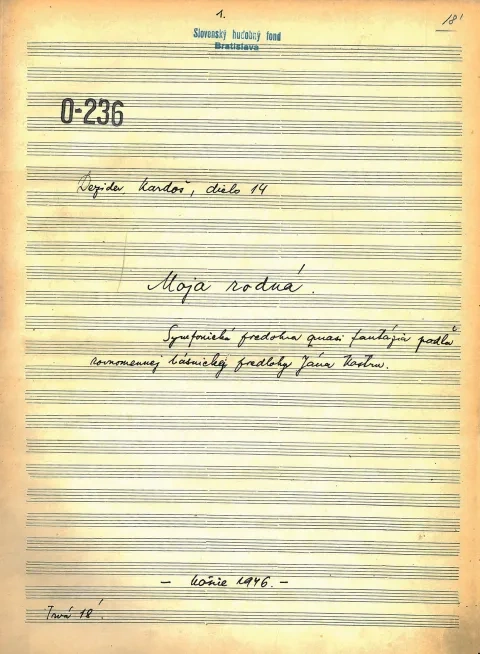 1.
18'
Slovenský hudobný fond
Bratislava
O-236
Dezider Kardoš, dielo 14
Moja rodná.
Symfonická predohra quasi fantázia podľa
rovnomennej básnickej predlohy Jána Kostru.
- Košice 1946. -
Trvá 18'.